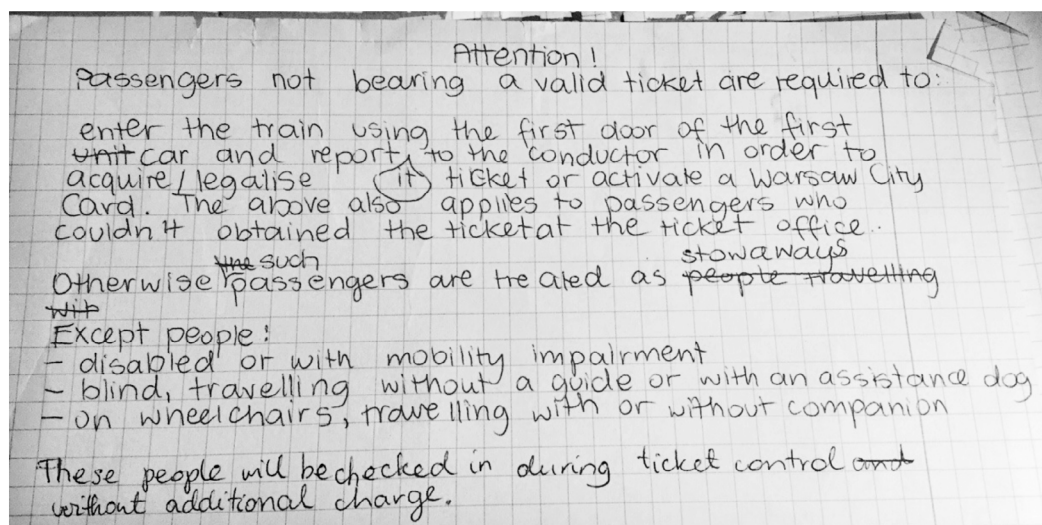 Attention!
Passengers not bearing a valid ticket are required to:
enter the train using the first door of the first
unit car and report to the conductor in order to
acquire/legalise it ticket or activate a Warsaw City
Card. The above also applies to passengers who
couldn't obtained the ticket at the ticket office..
the such stowaways
Otherwise passengers are treated as people travelling
wit
Except people:
- disabled or with mobility impairment
- blind, travelling without a guide or with an assistance dog
- on wheelchairs, travelling with or without companion
These people will be checked in during ticket control and
without additional charge.